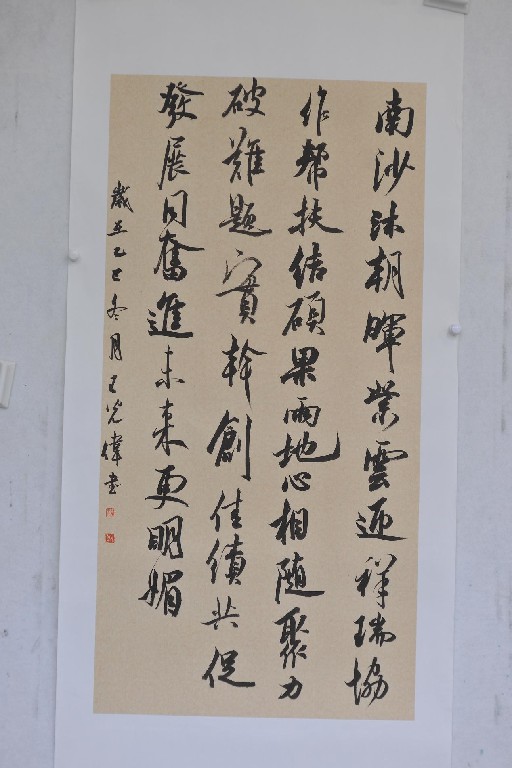 南沙沐朝暉紫雲迎祥瑞協
作幫扶結碩果兩地心相隨聚力
破難題實幹創佳績共促
發展同奮進未來更明媚
歲在乙巳冬月王光偉書